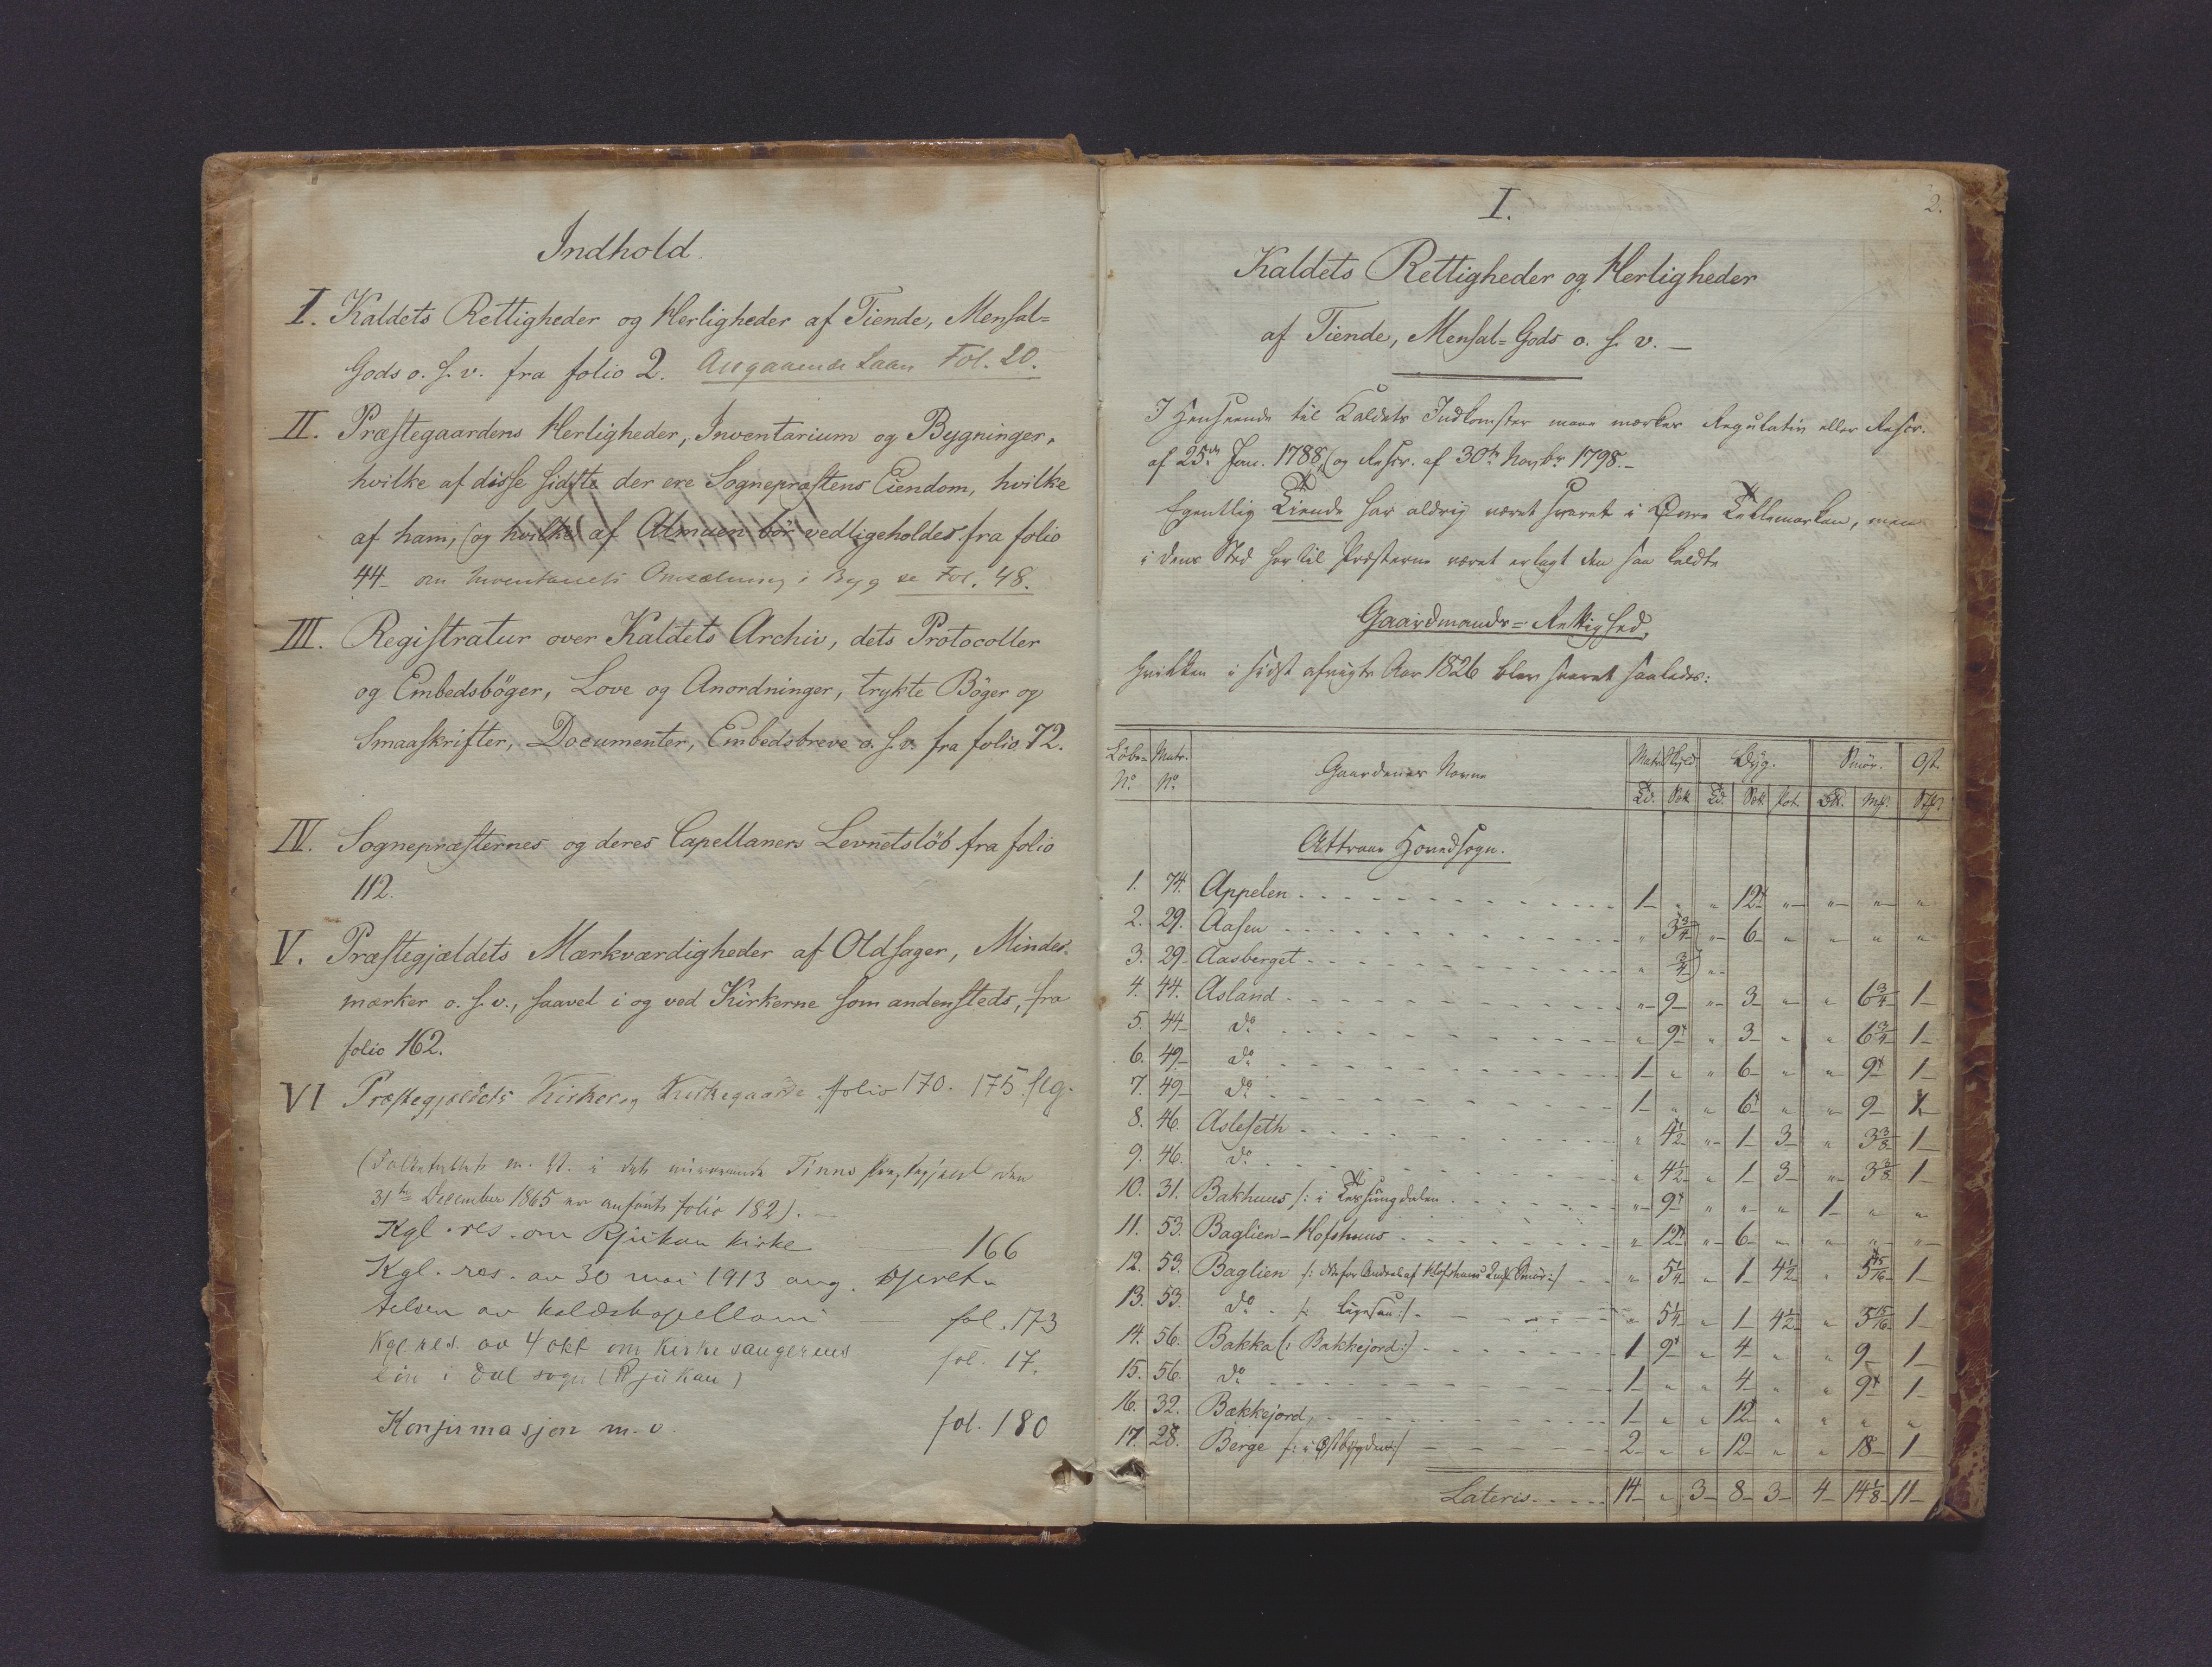 Indhold.
I. Kaldets Rettigheder og Herligheder af Tiende, Mensal=
Gods o. s. v. fra folio 2. Angaaende Laan Fol. 20.
II. Præstegaardens Herligheder, Inventarium og Bygninger,
hvilke af disse sidste der ere Sognepræstens Eiendom, hvilke
af ham, (og hvilke) af Almuen bör vedligeholdes fra folio
44 om Inventariets Omsætning i Byg se Fol. 48.
III. Registratur over Kaldets Archiv, dets Protocoller
og Embedsböger, Love og Anordninger, trykte Böger og
Smaaskrifter, Documenter, Embedsbreve o. s. v. fra folio 72.
IV. Sognepræsternes og deres Capellaners Levnetslöb fra folio
112.
V. Præstegjældets Mærkværdigheder af Oldsager, Mindes=
mærker o. s. v., saavel i og ved Kirkerne som andensteds, fra
folio 162.
VI Præstegjældets Kirker og Kirkegaarde folio 170. 175 flg.
(Folketallet m. V. i det nuværende Tinns Præstegjæld den
31te December 1865 er anført folio 182).
Kgl. res. om Rjukan kirke 166
Kgl. res. av 30 mai 1913 ang. opret-
telsen av kaldskapellani fol. 173
Kgl. res. av 4 okt om kirkesangerens
løn i Dal sogn (Rjukan) fol. 17.
Konfirmasjon m. v. fol. 180
2.
I.
Kaldets Rettigheder og Herligheder
af Tiende, Mensal=Gods o. s. v.
I Henseende til Kaldets Indkomster maae mærkes Regulativ eller Rescr.
af 25de Jan. 1788, (og Rescr. af 30te Novbr 1798.
Egentlig Tiende har aldrig været svaret i Övre Tellemarken, men
i dens Sted har til Præsterne været erlagt den saa kaldte
Gaardmands=Rettighed,
hvilken i sidst afvigte Aar 1826 blev svaret saaledes:
Löbe= No. Matr. No. Gaardenes Navne Matr. Skyld Byg. Smör. Ost.
Td. Sk. Td. Sk. Pot. Mk. Stk.
Attraae Hovedsogn.
1. 74. Appelen 1 " " 12 " " " "
2. 29. Aasen " 3 3/4 " 6 " " " "
3. 29. Aasberget " 3/4 "
4. 44. Asland " 9 " 3 " " 6 3/4 1
5. 44 do " 9 " 3 " " 6 3/4 1
6. 49 do 1 " " 6 " " 9 1
7. 49 do 1 " " 6 " " 9 1
8. 46. Asleseth " 4 1/2 " 1 3 " 3 3/8 1
9. 46. do " 4 1/2 " 1 3 " 3 3/8 1
10. 31. Bakhuus /: i Tessungdalen " 9 " " " 1 " "
11. 53. Baglien-Hofshuus " 12 " 6 " " " "
12. 53. Baglien " 5 1/4 " 1 4 1/2 " 5 15/16 1
13. 53. do /: ligesaa :/ " 5 1/4 " 1 4 1/2 " 5 15/16 1
14. 56. Bakka (: Bakkejord :) 1 9 " 4 " " 9 1
15. 56. do 1 " " 4 " " 9 1
16. 32. Bakkejord 1 " " 12 " " " "
17. 28. Berge /: i Östbygden :/ 2 " " 12 " " 18 1
Lateris 14 " 3 8 3 4 14 1/8 11